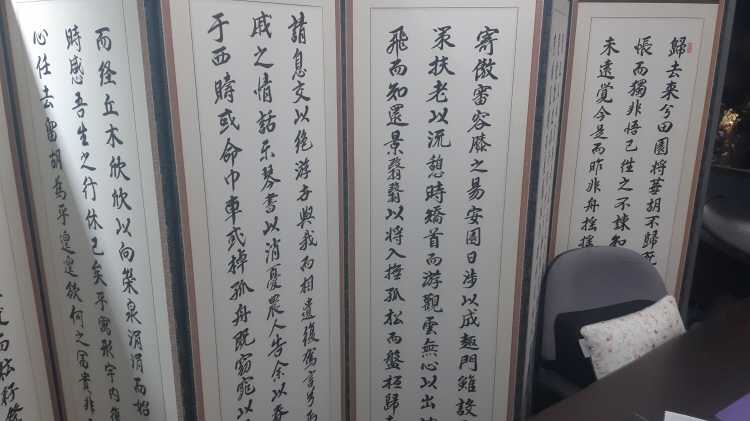 歸去來兮田園將蕪胡不歸
悵而獨悲悟已往之不諫知
未遠覺今是而昨非舟搖搖
寄傲審容膝之易安園日涉以成趣門雖設
策扶老以流憩時矯首而游觀雲無心以出
飛而知還景翳翳以将入撫孤松而盤桓歸
請息交以絶游世與我而相遺復駕言兮焉
戚之情話樂琴書以消憂農人告余以春
于西疇或命巾車或棹孤舟既窈窕以
而経丘木欣欣以向榮泉涓涓而始
時感吾生之行休已矣乎寓形宇内復
心任去留胡為乎遑遑欲何之富貴非
而耘耔登